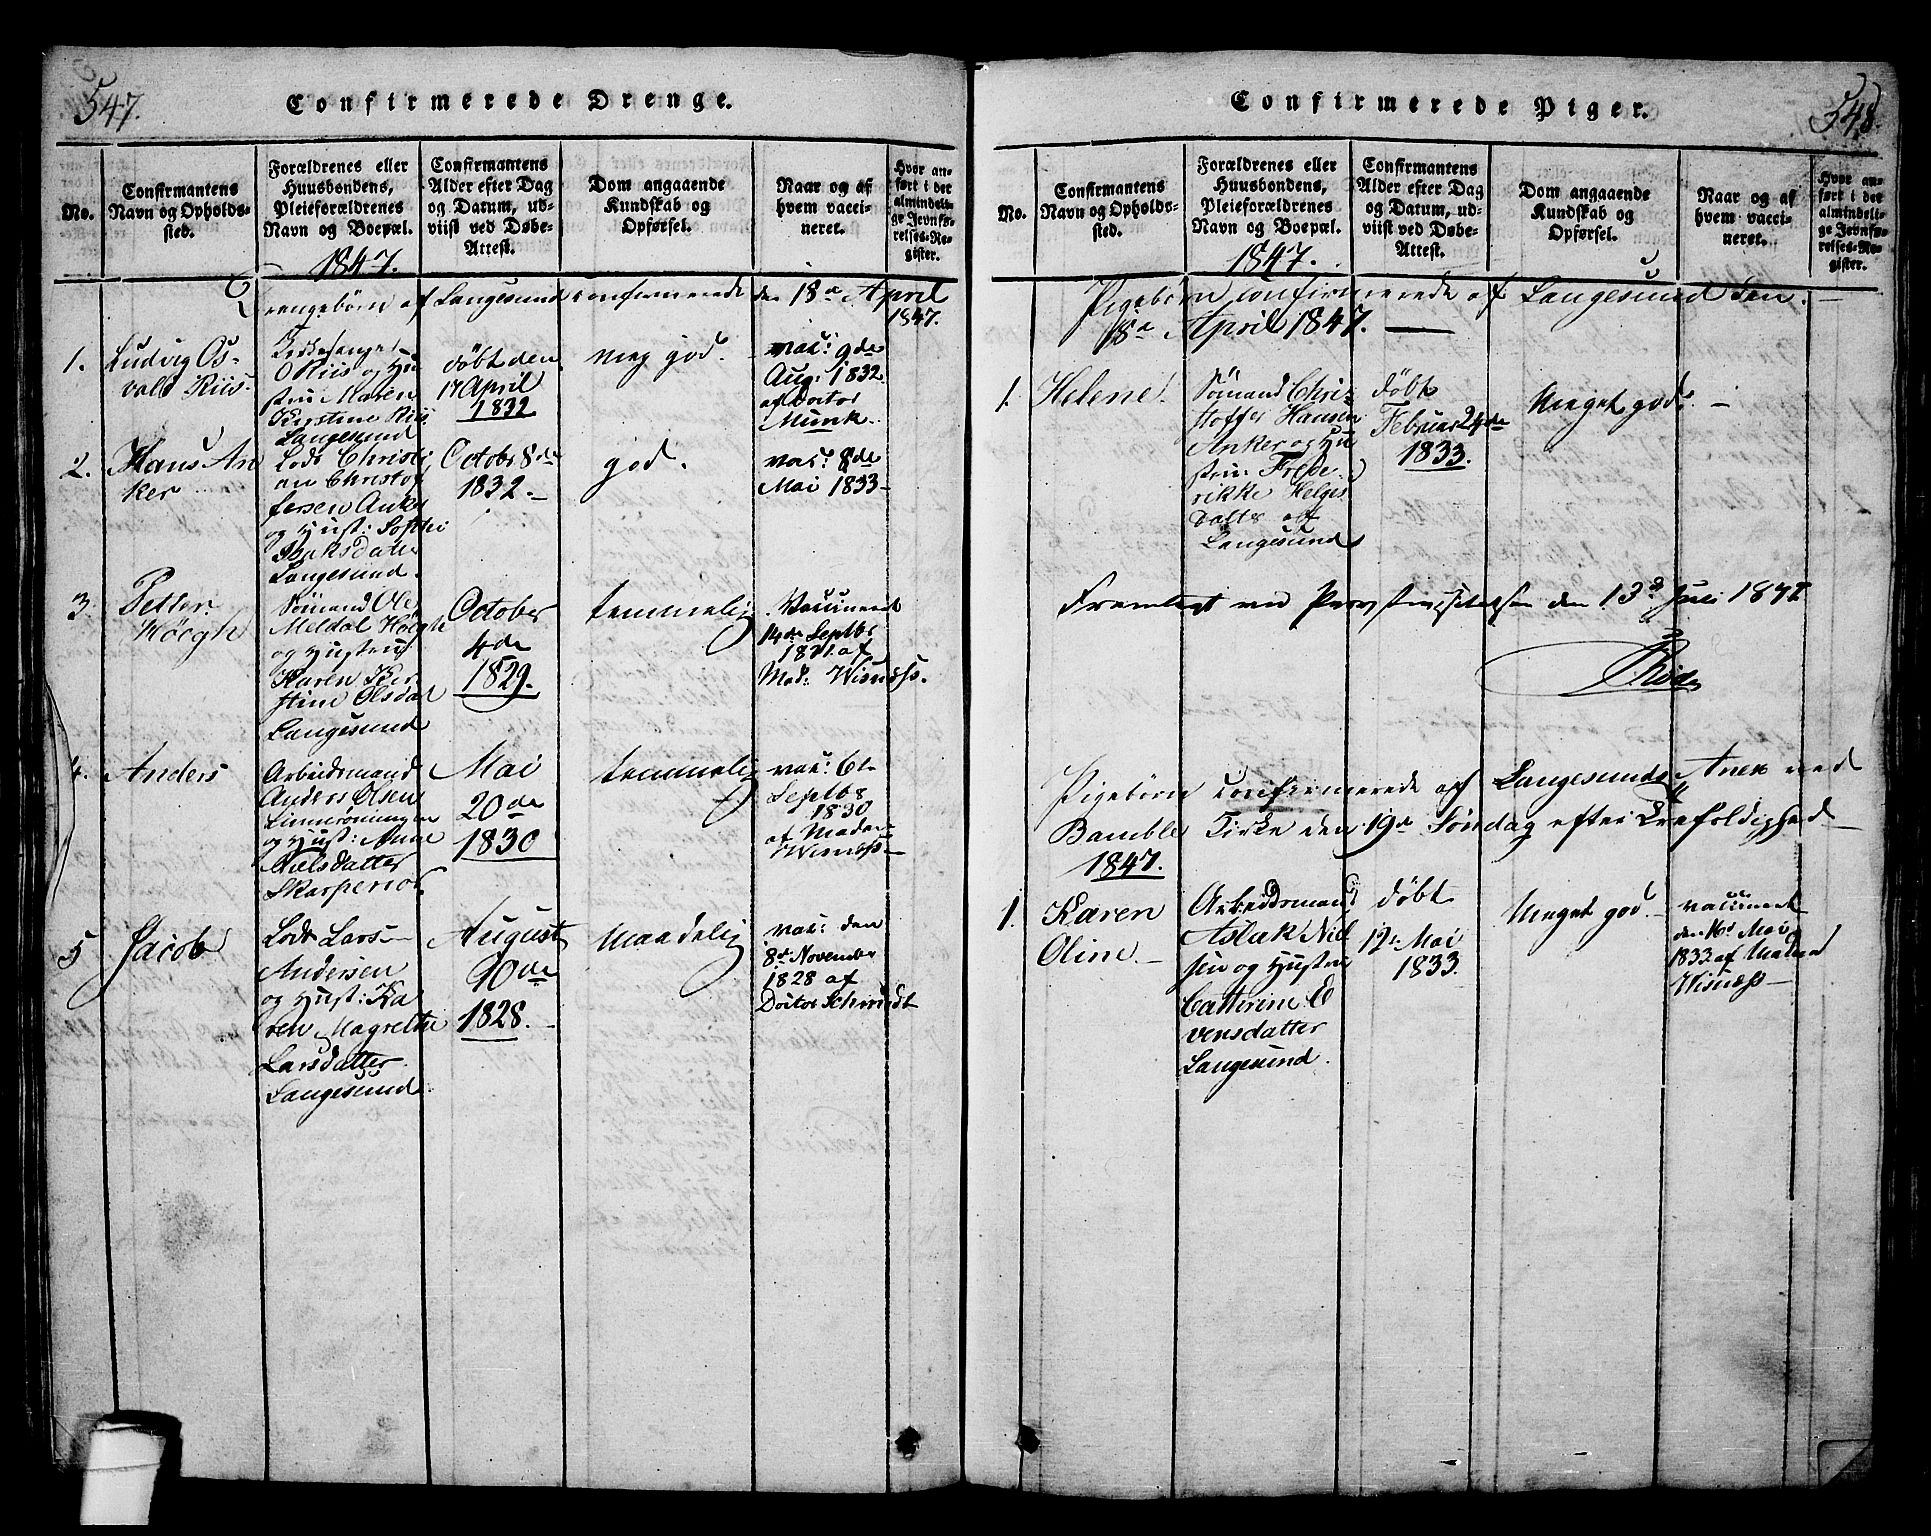 547.
Confirmerede Drenge.
No.
Confirmantens
Navn og Opholds-
sted.
Forældrenes eller
Huusbondens,
Pleieforældrenes
Navn og Boepæl.
1847.
Confirmantens
Alder efter Dag
og Datum, ud-
viist ved Døbe-
Attest.
Dom angaaende
Kundskab og
Opførsel.
Naar og af
hvem vacci-
neret.
Hvor an-
ført i det
almindeli-
ge Jevnfø-
relses-Re-
gister.
Drengebørn af Langesund confirmerede den 18de April
1847.
1.
Ludvig Os-
vald Riis
Riis og Hu
stru Maren
Kirstine Riis
Langesund
døbt den
17 April
1832
meg god.
vac: 9de
Aug: 1832
af Doctor
Munk.
2.
Hans An
ker
Lods Christi
an Christof
fersen Anker
og Hust: Sophi
Isaksdatter
Langesund.
Octobr 8de
1832.
god.
vac: 8de
Mai 1833
3.
Petter
Høegh
Sømand Ole
Meldal Høegh
og Hustru
Karen Kir
stine Olsdat
Langesund
October
4de
1829.
temmelig
Vaccineret
14de Septbr
1831 af
Mad: Wisness.
4.
Anders
Arbeidsmand
Anders Olsen
og Hust: Anne
Nielsdatter
Mai
20de
1830
temmelig
vac: 6te
Septbr
1830
af Madam
Wisness
5
Jacob
Lods Lars
Andersen
og Hust: Ka
ren Magrethe
Larsdatter
Langesund.
August
90de
1828.
Maadelig
vac: den
8de November
1828 af
Doctor Schmidt
548.
Confirmerede Piger.
No.
Confirmantens
Navn og Opholds-
sted.
Forældrenes eller
Huusbondens,
Pleieforældrenes
Navn og Boepæl.
1847.
Confirmantens
Alder efter Dag
og Datum, ud-
viist ved Døbe-
Attest.
Dom angaaende
Kundskab og
Opførsel.
Naar og af
hvem vacci-
neret.
Hvor an-
ført i det
almindeli-
ge Jevnfø-
relses-Re-
gister.
Pigebørn confirmerede af Langesund den
18de April 1847.
1.
Helene
Sømand Chri-
stoffer Hansen
Anker og Hu
stru Frede
rikke Helges
datter af
Langesund
døbt
Februar 24de
1833.
Meget god.
Fremlagt ved Provstivisitatsen den 13de Juli 1847
Pigebørn confirmerede af Langesunds Anex ved
Bamble Kirke den 19de Søndag efter Trefoldighed
1847.
1.
Karen
Oline.
Arbeidsmand
Aslak Niel
sen og Hustru
Cathrine E
vensdatter
Langesund.
døbt
12te Mai
1833.
Meget god.
vaccineret
den 16de Mai
1833 af Madam
Wisness